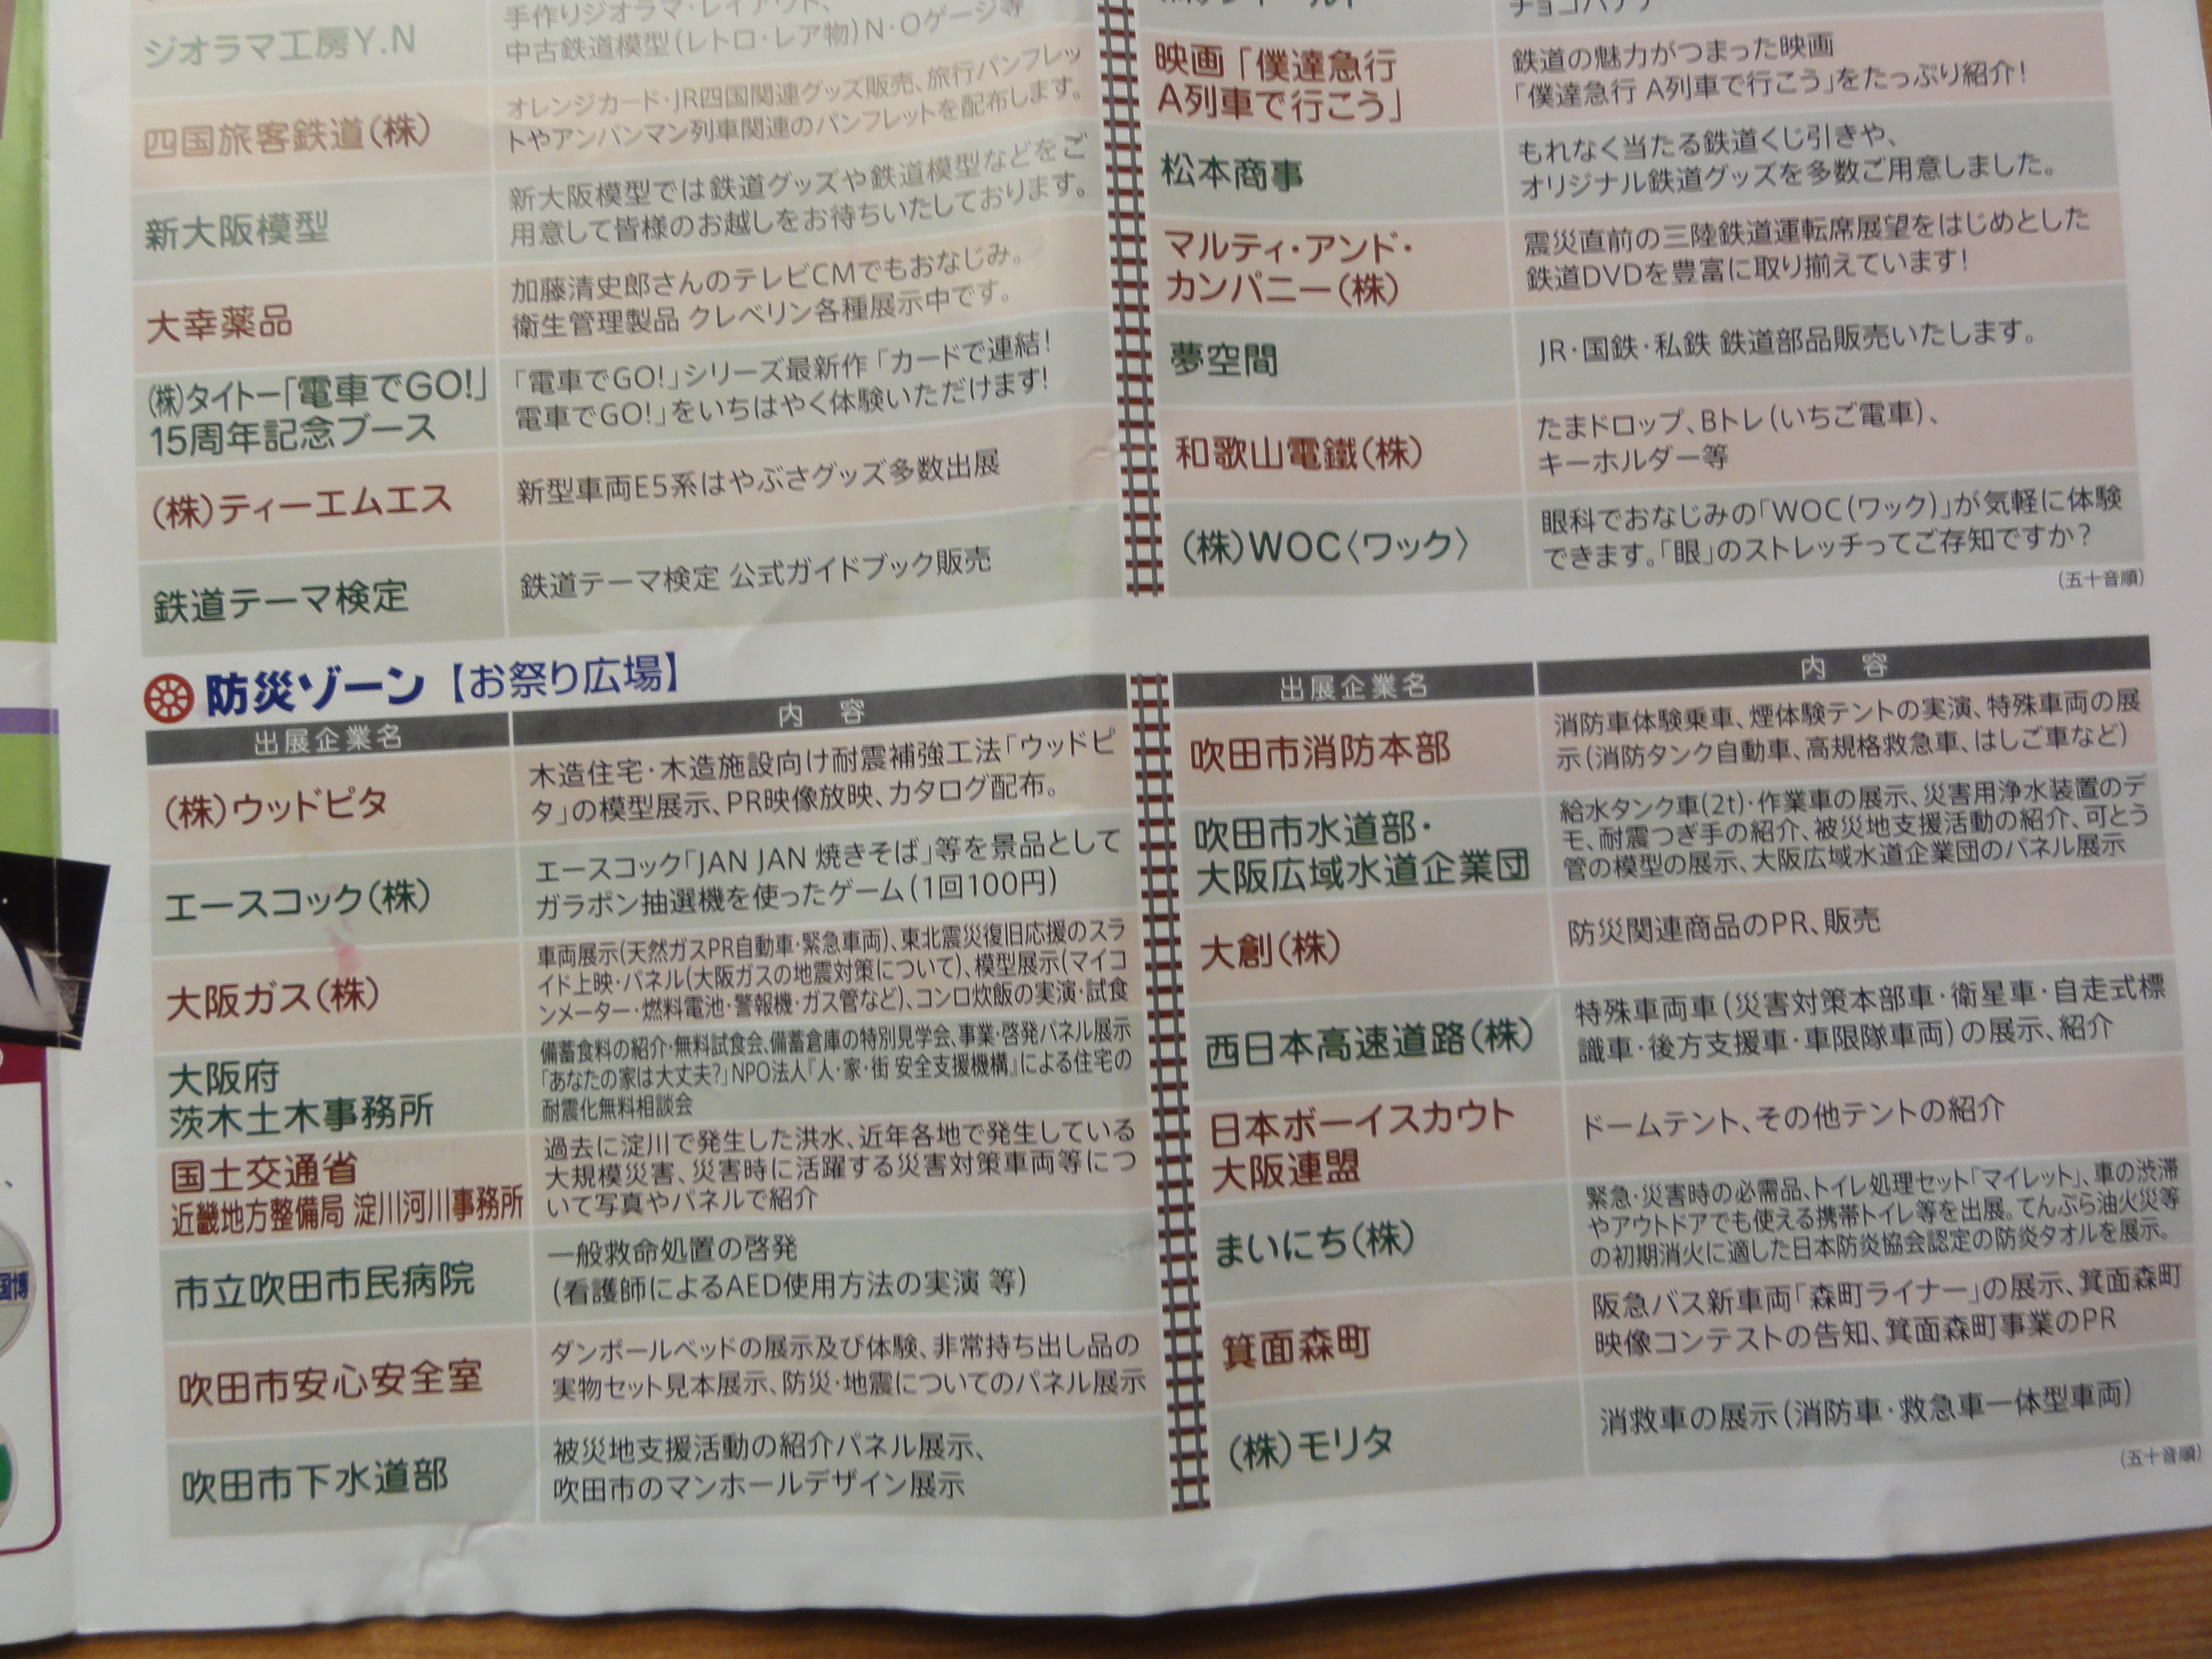 手作りジオラマ・レイアウト、
ジオラマ工房Y.N
中古鉄道模型(レトロ・レア物)N・Oゲージ等
四国旅客鉄道(株)
オレンジカード・JR四国関連グッズ販売、旅行パンフレッ
トやアンパンマン列車関連のパンフレットを配布します。
新大阪模型
新大阪模型では鉄道グッズや鉄道模型などをご
用意して皆様のお越しをお待ちいたしております。
大幸薬品
加藤清史郎さんのテレビCMでもおなじみ。
衛生管理製品 クレベリン各種展示中です。
(株)タイトー「電車でGO!」
15周年記念ブース
「電車でGO!」シリーズ最新作「カードで連結!
電車でGO!」をいちはやく体験いただけます!
(株)ティーエムエス
新型車両E5系はやぶさグッズ多数出展
鉄道テーマ検定
鉄道テーマ検定 公式ガイドブック販売
映画「僕達急行
A列車で行こう」
鉄道の魅力がつまった映画
「僕達急行 A列車で行こう」をたっぷり紹介!
松本商事
もれなく当たる鉄道くじ引きや、
オリジナル鉄道グッズを多数ご用意しました。
マルティ・アンド・
カンパニー(株)
震災直前の三陸鉄道運転席展望をはじめとした
鉄道DVDを豊富に取り揃えています!
夢空間
JR・国鉄・私鉄 鉄道部品販売いたします。
和歌山電鐵(株)
たまドロップ、Bトレ(いちご電車)、
キーホルダー等
(株)WOC〈ワック〉
眼科でおなじみの「WOC(ワック)」が気軽に体験
できます。「眼」のストレッチってご存知ですか?
(五十音順)
防災ゾーン【お祭り広場】
出展企業名
内 容
(株)ウッドピタ
木造住宅・木造施設向け耐震補強工法「ウッドピ
タ」の模型展示、PR映像放映、カタログ配布。
エースコック(株)
エースコック「JAN JAN 焼きそば」等を景品として
ガラポン抽選機を使ったゲーム(1回100円)
大阪ガス(株)
車両展示(天然ガスPR自動車・緊急車両)、東北震災復旧応援のスラ
イド上映・パネル(大阪ガスの地震対策について)、模型展示(マイコ
ンメーター・燃料電池・警報機・ガス管など)、コンロ炊飯の実演・試食
大阪府
茨木土木事務所
備蓄食料の紹介・無料試食会、備蓄倉庫の特別見学会、事業・啓発パネル展示
「あなたの家は大丈夫?」NPO法人『人・家・街 安全支援機構』による住宅の
耐震化無料相談会
国土交通省
近畿地方整備局 淀川河川事務所
過去に淀川で発生した洪水、近年各地で発生している
大規模災害、災害時に活躍する災害対策車両等につ
いて写真やパネルで紹介
市立吹田市民病院
一般救命処置の啓発
(看護師によるAED使用方法の実演 等)
吹田市安心安全室
ダンボールベッドの展示及び体験、非常持ち出し品の
実物セット見本展示、防災・地震についてのパネル展示
吹田市下水道部
被災地支援活動の紹介パネル展示、
吹田市のマンホールデザイン展示
出展企業名
内 容
吹田市消防本部
消防車体験乗車、煙体験テントの実演、特殊車両の展
示(消防タンク自動車、高規格救急車、はしご車など)
吹田市水道部・
大阪広域水道企業団
給水タンク車(2t)・作業車の展示、災害用浄水装置のデ
モ、耐震つぎ手の紹介、被災地支援活動の紹介、可とう
管の模型の展示、大阪広域水道企業団のパネル展示
大創(株)
防災関連商品のPR、販売
西日本高速道路(株)
特殊車両車(災害対策本部車・衛星車・自走式標
識車・後方支援車・車限隊車両)の展示、紹介
日本ボーイスカウト
大阪連盟
ドームテント、その他テントの紹介
まいにち(株)
緊急・災害時の必需品、トイレ処理セット「マイレット」、車の渋滞
やアウトドアでも使える携帯トイレ等を出展。てんぷら油火災等
の初期消火に適した日本防炎協会認定の防炎タオルを展示。
箕面森町
阪急バス新車両「森町ライナー」の展示、箕面森町
映像コンテストの告知、箕面森町事業のPR
(株)モリタ
消救車の展示(消防車・救急車一体型車両)
(五十音順)